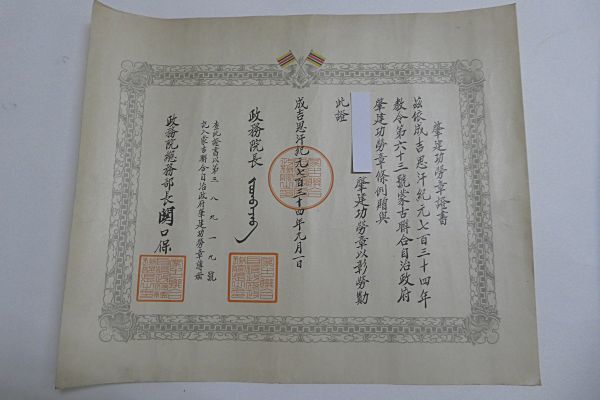 肇建功勞章證書
茲依成吉思汗紀元七百三十四年
教令第六十三號蒙古聯合自治政府
肇建功勞章條例贈與
肇建功勞章以彰勞勩
此證
成吉思汗紀元七百三十四年九月一日
政務院長
查此證書以第三八九一九號
記入蒙古聯合自治政府肇建功勞章簿冊
政務院總務部長關口保